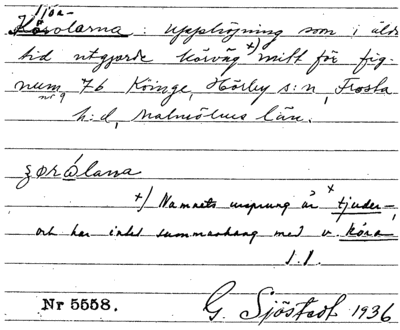 Tjöa-
Körolarna : upphöjning som i äldr
tid utgjorde körväg +) mitt för fig-
num. 76 Köinge, Hörby s:n, Frosta
nr 9
h:d, Malmöhus län.
+) Namnets ursprung är tjuder-
och har intet sammanhang med v. köra
Nr 5558.
G. Sjöstedt 1936